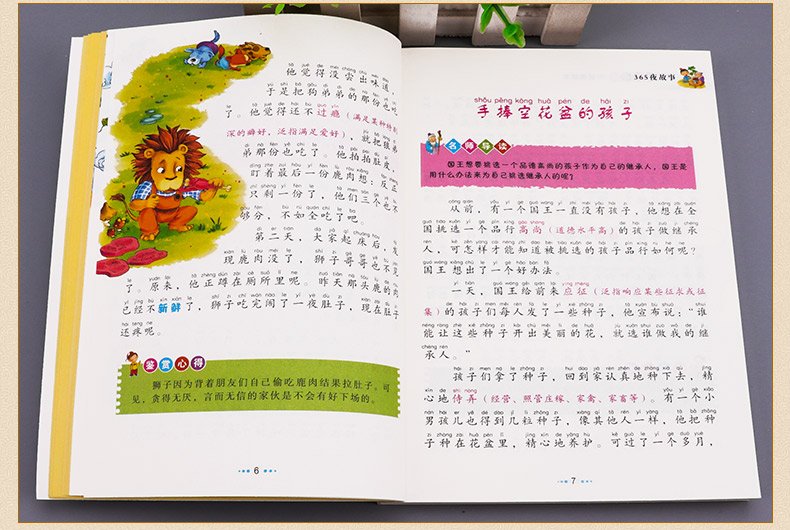 他觉得没尝出味道，
于是把狗弟弟的那份也吃
了。他觉得还不过瘾（满足某种特别
深的癖好，泛指满足爱好），就把狼弟
弟那份也吃了。他拍拍肚皮，
盯着最后一份鹿肉想：反正
只剩一份了，他们三个也不
够分，不如全吃了吧。
第二天，大家起床后，发
现鹿肉没了，狮子哥哥也不见
了。原来，他正蹲在厕所里呢。昨天那头鹿的肉
已经不新鲜了，狮子吃完闹了一夜肚子，现在肚子
还疼呢。
鉴赏心得
狮子因为背着朋友们自己偷吃鹿肉结果拉肚子。可
见，贪得无厌，言而无信的家伙是不会有好下场的。
6
365夜故事
shǒu pěng kōng huā pén de hái zi
手捧空花盆的孩子
名师导读
国王想要挑选一个品德高尚的孩子作为自己的继承人，国王是
用什么办法来为自己挑选继承人的呢？
从前，有一个国王一直没有孩子，他想在全
国挑选一个品行高尚（道德水平高）的孩子做继承
人，可怎样才能知道被挑选的孩子品行如何呢？
国王想出了一个好办法。
一天，国王给前来应征（泛指响应某些征求或征
集）的孩子们每人发了一些种子，他宣布说：“谁
能让这些种子开出美丽的花，就选谁做我的继
承人。”
孩子们拿了种子，回到家认真地种下去，精
心地侍弄（经营、照管庄稼、家禽、家畜等）。有一个小
男孩儿也得到几粒种子，像其他人一样，他把种
子种在花盆里，精心地养护。可过了一个多月，
7